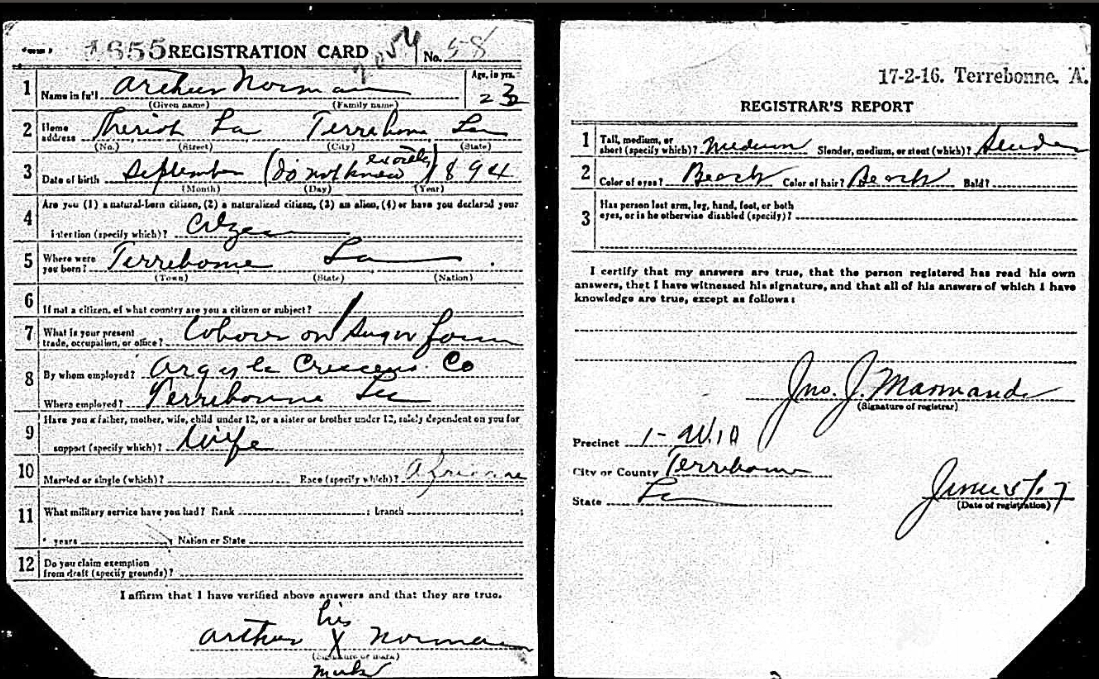 1655 REGISTRATION CARD 2054 No. 58
1 Name in full Arthur Norman Age, in yrs. 23
(Given name) (Family name)
2 Home address Theriot La Terrebone La
(No.) (Street) (City) (State)
3 Date of birth September (do not know exactly) 1894
(Month) (Day) (Year)
4 Are you (1) a natural-born citizen, (2) a naturalized citizen, (3) an alien, (4) or have you declared your
intention (specify which)?
5 Where were you born? Terrebonne La
(Town) (State) (Nation)
6 If not a citizen, of what country are you a citizen or subject?
7 What is your present trade, occupation, or office? Labover on Sugar farm
8 By whom employed? Argyle Co
Where employed? Terrebonne La
9 Have you a father, mother, wife, child under 12, or a sister or brother under 12, solely dependent on you for
support (specify which)? Wife
10 Married or single (which)? Race (specify which)? African
11 What military service have you had? Rank ; branch ;
years ; Nation or State
12 Do you claim exemption
from draft (specify grounds)?
I affirm that I have verified above answers and that they are true.
his
Arthur X Norman
(Signature or mark)
mark
17-2-16. Terrebonne, A.
REGISTRAR'S REPORT
1 Tall, medium, or short (specify which)? Medium Slender, medium, or stout (which)? Slender
2 Color of eyes? Color of hair? Bald?
3 Has person lost arm, leg, hand, foot, or both
eyes, or is he otherwise disabled (specify)?
I certify that my answers are true, that the person registered has read his own
answers, that I have witnessed his signature, and that all of his answers of which I have
knowledge are true, except as follows:
Jno. J. Marmande
(Signature of registrar)
Precinct
City or County Terrebonne
State La
June 5/17
(Date of registration)